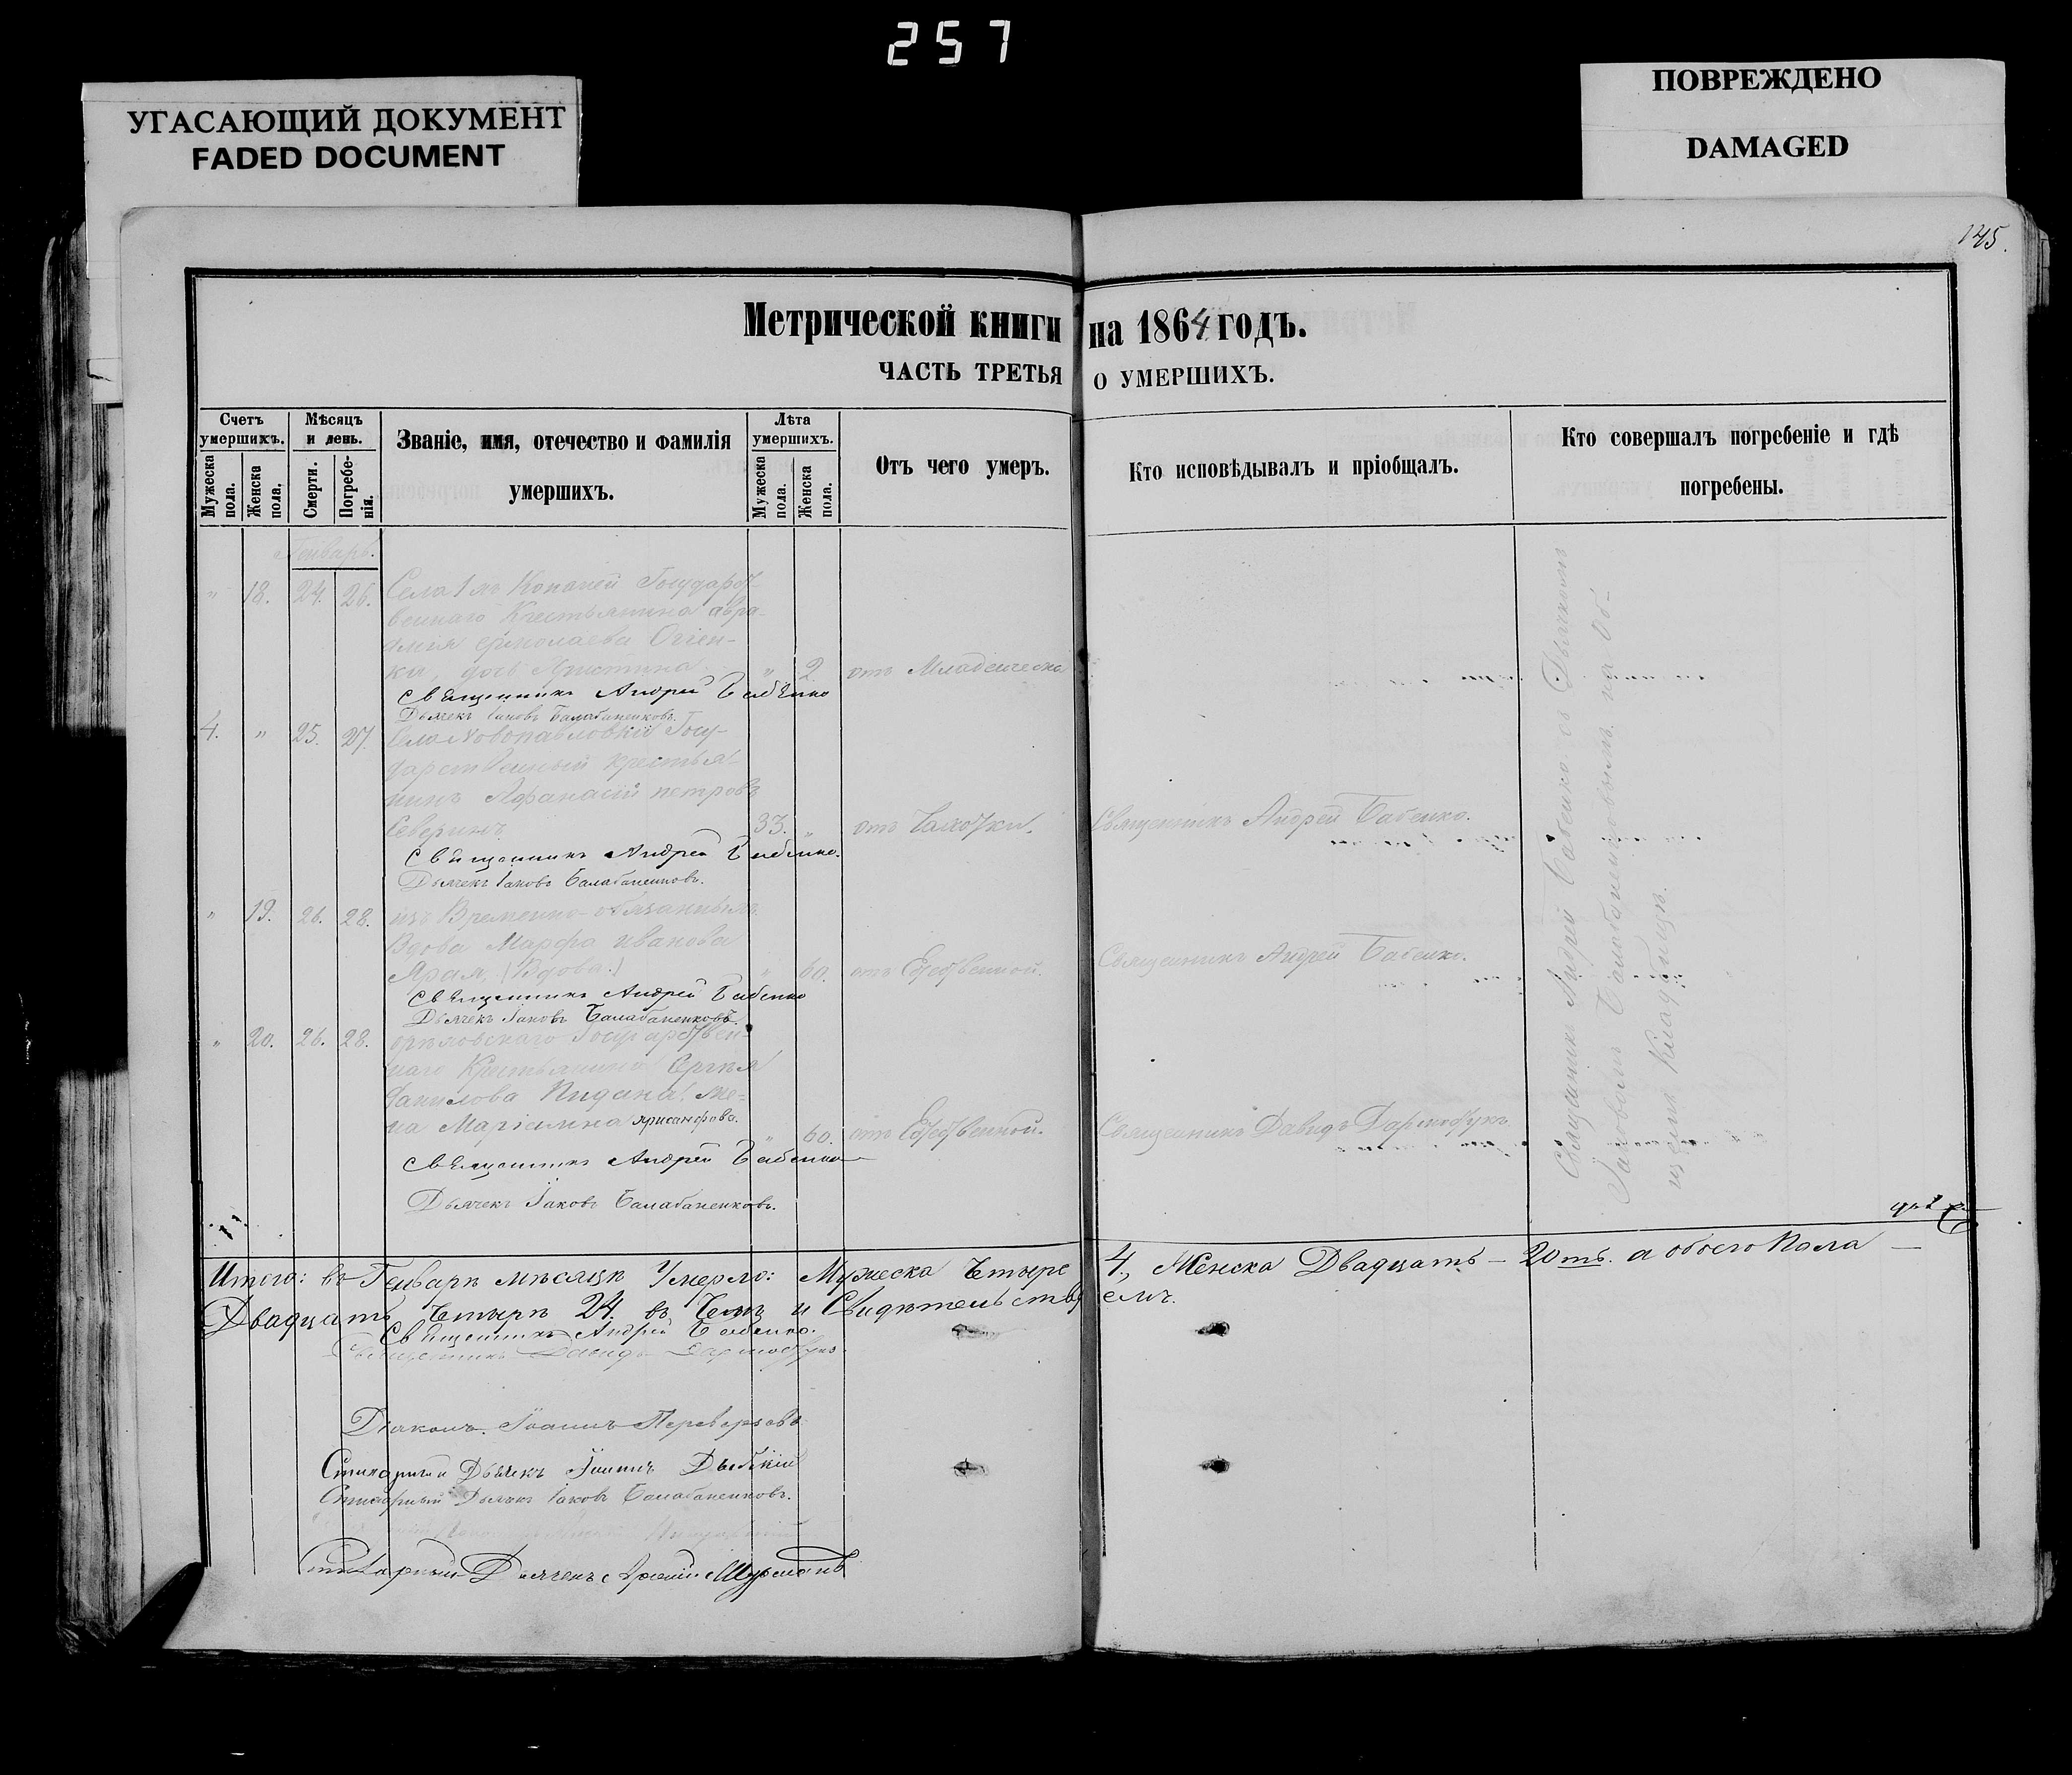 257
УГАСАЮЩИЙ ДОКУМЕНТ
FADED DOCUMENT
ПОВРЕЖДЕНО
DAMAGED
145.
Метрической книги на 1864 годъ.
ЧАСТЬ ТРЕТЬЯ О УМЕРШИХЪ.
Счетъ умершихъ.
Мужеска пола.
Женска пола.
Мѣсяцъ и день.
Смерти.
Погребенія.
Званіе, имя, отечество и фамилія умершихъ.
Лѣта умершихъ.
Мужеска пола.
Женска пола.
Отъ чего умеръ.
Кто исповѣдывалъ и пріобщалъ.
Кто совершалъ погребеніе и гдѣ погребены.
Генварь.
" 18. 24. 26. Села Копаней Государст-
веннаго Крестьянина Авра-
амія Ермолаева Огіен-
ки, дочь Христина " 2. отъ Младенческа
Священникъ Андрей Бабенко
Дьячекъ Іаковъ Балабаненковъ.
4. " 25. 27. Села Новопавловкіи Госу-
дарственный крестья-
нинъ Афанасій петровъ
Северинъ. 33. " отъ Чахотки. Священникъ Андрей Бабенко.
Священникъ Андрей Бабенко.
Дьячекъ Іаковъ Балабаненковъ.
" 19. 26. 28. изъ Временно-обязанныхъ
Вдова Марфа иванова
(Вдова.) " 60. отъ Естественной. Священникъ Андрей Бабенко.
Священникъ Андрей Бабенко
Дьячекъ Іаковъ Балабаненковъ.
" 20. 26. 28. орѣховскаго Государствен-
наго Крестьянина Сергѣя
данилова Пидана же-
на Маріамна Хрисанфова. " 60. отъ Естественной. Священникъ Давидъ
Священникъ Андрей Бабенко
Дьячекъ Іаковъ Балабаненковъ.
Священникъ Андрей Бабенко съ Дьячкомъ
Іаковомъ Балабаненковымъ на об-
щемъ Кладбищѣ.
Итого: въ Генварѣ мѣсяцѣ Умерло: Мужеска Четыре 4., Женска Двадцать – 20ть. а обоего Пола —
Двадцать Четыре 24. въ Чемъ и Свидѣтельствуемъ.
Священникъ Андрей Бабенко.
Священникъ Давидъ
Діаконъ Іоаннъ
Стихарный Дьячекъ Іоаннъ
Стихарный Дьячекъ Іаковъ Балабаненковъ.
Стихарный Дьячекъ